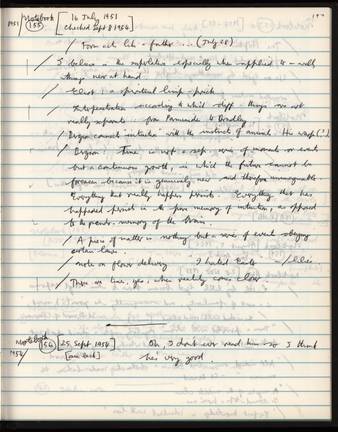 1951 Notebook 155 [16 July 1951
Checked Sept 8 1954]
/ For act like a father ... (July 28)
/ I believe in the superlative especially when applied to a well
things near at hand
/ Eliot is a spiritual limp-prick
/ Interpenetration according to which diff. things are not
really separate from Parmenides to Bradley
/ Bergson connects intuition with the instinct of animals. His wasp (?)
/ Bergson Time is not a sep. series of moments or events
but a continuous growth, in which the future cannot be
foreseen because it is genuinely new and therefore unimaginable
Everything that really happens persists. Everything that has
happened persists in the pure memory of intuition, as opposed
to the pseudo-memory of the brain.
/ A piece of matter is nothing but a series of events obeying
certain laws.
/ note on flower delivery
/ There are times, yes, when reality comes closer.
Notebook
1954 156 [25 Sept 1954] Oh, I don't ever read him now I think
he's very good.